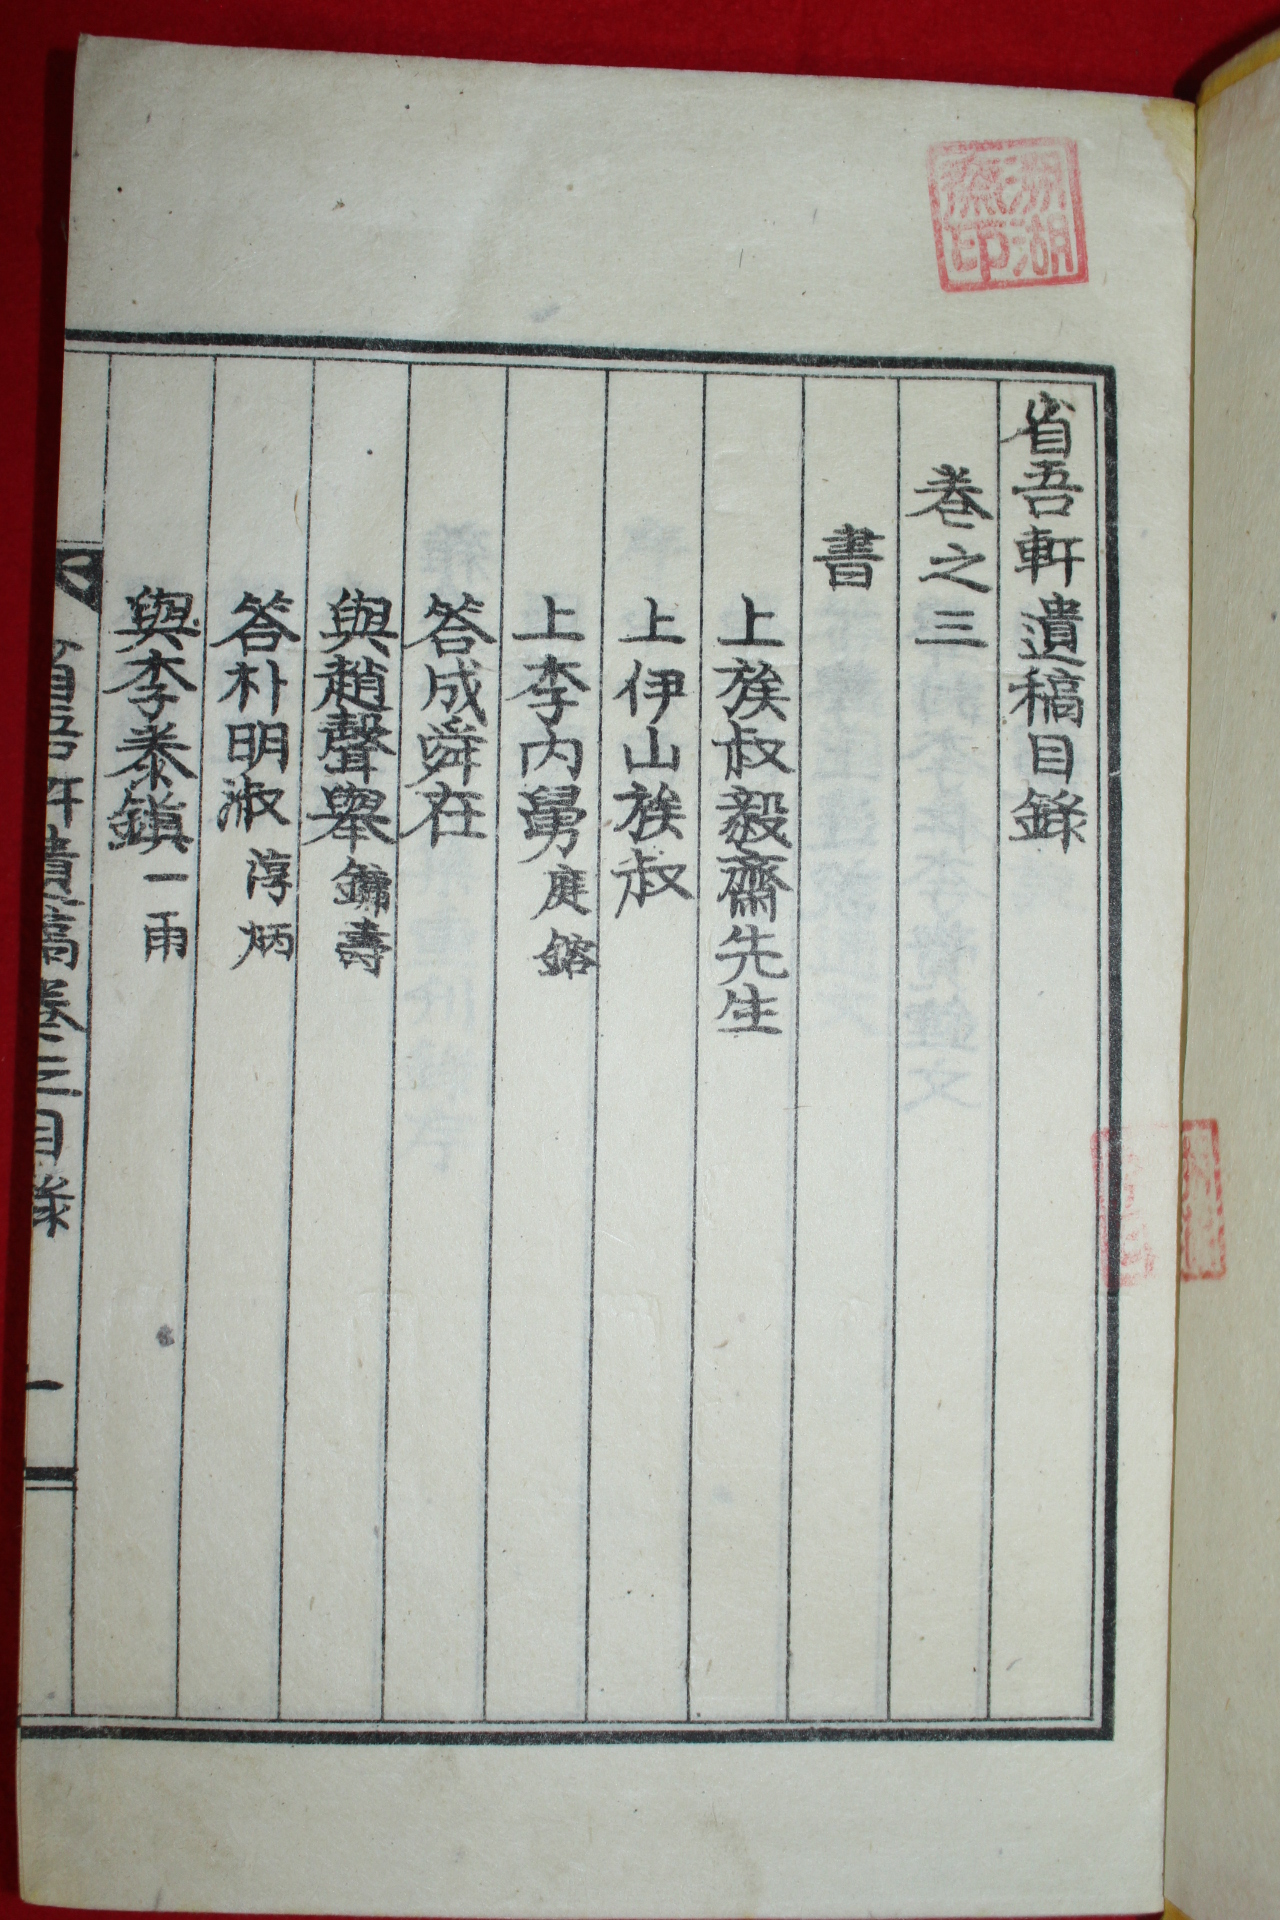 省吾軒遺稿目錄
卷之三
書
上族叔毅齋先生
上伊山族叔
上李內舅庭鎔
答成舜在
與趙聲舉鏞壽
答朴明淑淳炳
與李泰鎭一雨
省吾軒遺稿卷之三目錄
一